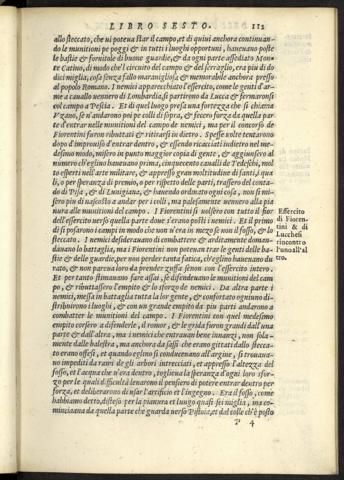 LIBRO SESTO. 112
allo steccato, che ui potena star il campo, et di quiui anchora continuan-
do le munitioni pe poggi & in tutti i luoghi opportuni, haueuano poste
le bastie & fornitole di buone guardie, & da ogni parte assediato Mon-
te Catino, di modo che l circuito del campo & del serraglio, era piu di do
dici miglia, cosa senza fallo marauigliosa & memorabile anchora presso
al popolo Romano. I nemici apparecchiato l'essercito, come le genti d'ar-
me a cauallo uennero di Lombardia, si partirono da Lucca & fermaronsi
col campo a Pescia. Et di quel luogo presa una fortezza che si chiama
Vzano, se n'andarono poi pe colli di sopra, & fecero forza da quella par-
te d'entrar nelle munitioni del campo de nemici, ma per il concorso de
Fiorentini furon ributtati & ritirarsi in dietro. Spesse uolte tentarono
dopo d'improuiso d'entrar dentro, & essendo ricacciati indietro nel me-
desimo modo, misero in punto maggior copia di gente, & aggiunsero al
numero ch'eglino haueuano prima, cinquecento caualli de Tedeschi, mol
to esperti nell'arte militare, & appresso gran moltitudine di fanti, i qua
li, o per speranza di premio, o per rispetto delle parti, trassero del conta-
do di Pisa, & di Lunigiana, & hauendo ordinato ogni cosa, non si mes-
sero piu di nascosto a andar per i colli, ma palesemente uennero alla pia
nura alle munitioni del campo. I Fiorentini si uolsero con tutto il fior
dell'essercito uerso quella parte doue s'erano posti i nemici. Et il primo
di si posarono i campi in modo che non u'era in mezo se non il fosso, & lo
steccato. I nemici desiderauano di combattere & arditamente doman-
dauano la battaglia, ma i Fiorentini non poteuan trar le genti delle ba-
stie & delle guardie, per non perder tanta fatica, ch'eglino haueuano du
rato, & non parea loro da prender zuffa senon con l'essercito intero.
Et per tanto stimauano fare assai, se difendeuano le munitioni del cam
po, & ributtassero l'empito & lo sforzo de nemici. Da altra parte i
nemici, messa in battaglia tutta la lor gente, & confortato ognuno di-
stribuirono i luoghi, & con un grande empito da piu parti andarono a
combatter le munitioni del campo. I Fiorentini con quel medesimo
empito corsero a difenderle, il romor, & le grida furon grandi dall'una
parte & dall'altra, ma i nemici che entrauan bene innanzi, non sola-
mente dalle balestra, ma anchora da sassi che erano gittati dallo stecca-
to erano offesi, et quando eglino si conduceuano all'argine, si trouaua-
no impediti da rami de gli arbori intrecciati, et appresso l'altezza del
fosso, et l'acqua che u'era dentro, toglieua la speranza d'ogni loro sfor-
zo per le quali difficultà leuarono il pensiero di potere entrar dentro per
forza, et deliberarono di usar l'artificio et l'ingegno. Era il fosso, come
habbiamo detto, disteso per la pianura et luogo quasi sei miglia, ma co-
minciaua da quella parte che guarda uerso Pistoia, et dal colle ch'è posto
P 4
Essercito
di Fioren-
tini & di
Lucchesi
rincontro
l'uno all'al
tro.